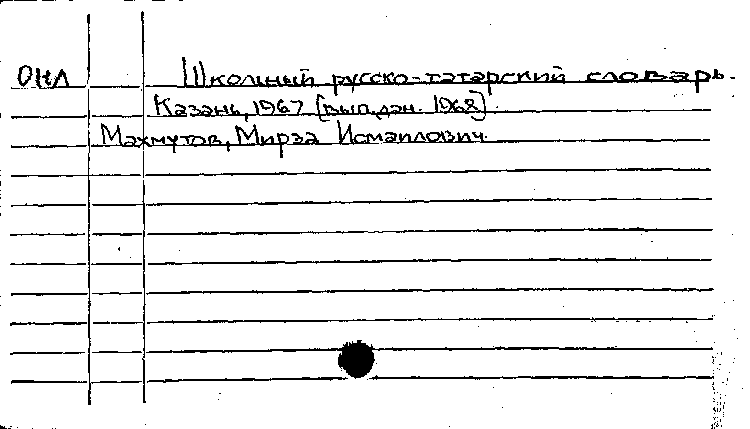 ОНЛ Школьный русско-татарский словарь.
Казань, 1967 [вып.дан. 1968].
Махмутов, Мирза Исмаилович.